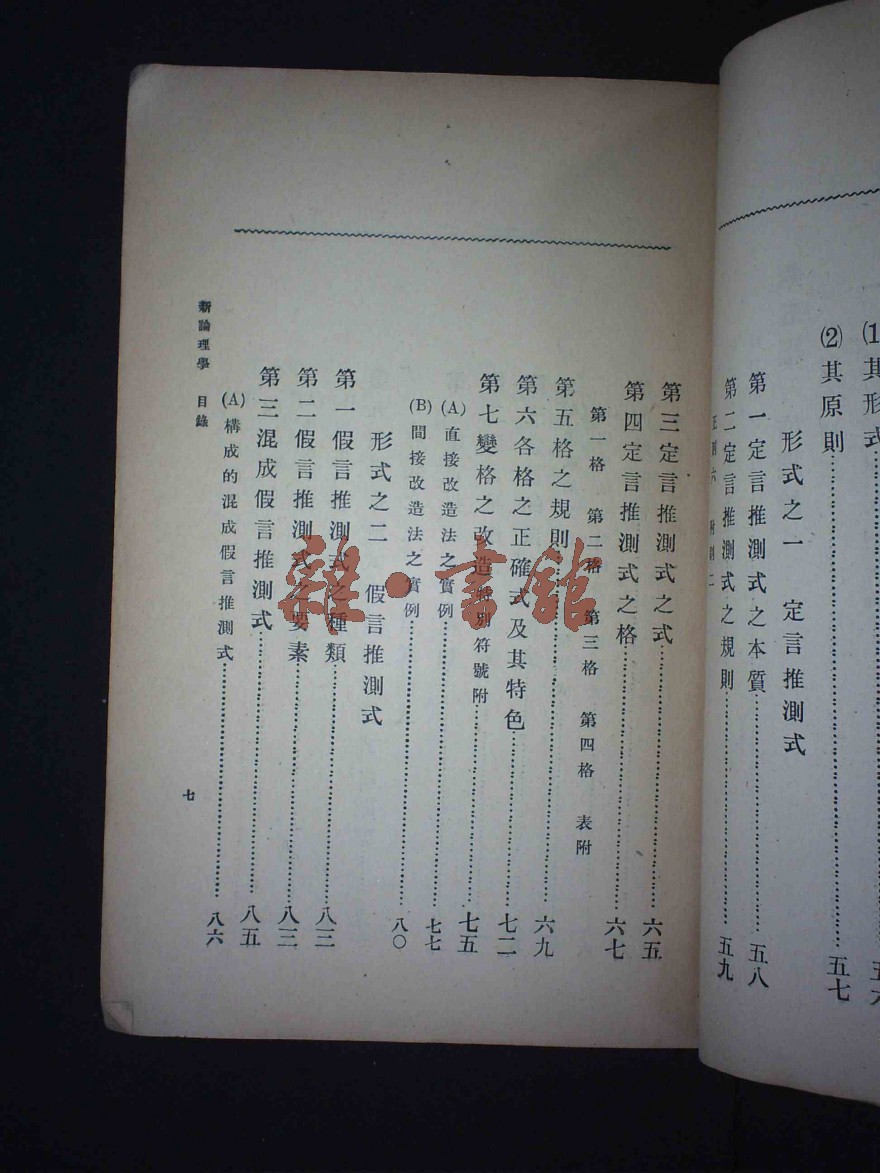 (1)其形式……五六
(2)其原則……五七
形式之一 定言推測式
第一定言推測式之本質……五八
第二定言推測式之規則……五九
正則六 附則二
第三定言推測式之式……六五
第四定言推測式之格……六七
第一格 第二格 第三格 第四格 表附
第五格之規則……六九
第六各格之正確式及其特色……七二
第七變格之改造特別符號附……七五
(A)直接改造法之實例……七七
(B)間接改造法之實例……八〇
形式之二 假言推測式
第一假言推測式之種類……八三
第二假言推測式之要素……八三
第三混成假言推測式……八五
(A)構成的混成假言推測式……八六
新論理學 目錄
七
雜·書館